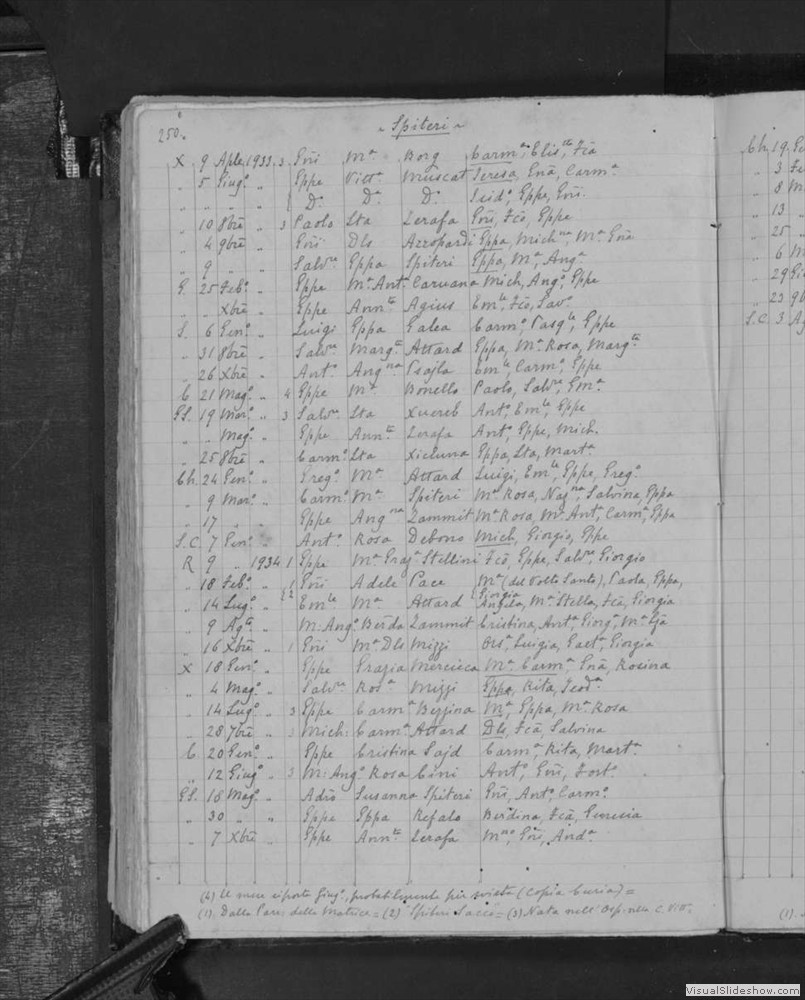 250.
~ Spiteri ~
X 9 Aple 1933 3 Gni Mª Borg Carmª, Elisth, Fcā
" 5 Giugº " Gppe Vittª Muscat Teresa, Gnā, Carmª
" " " " Dº Dª Dº Gppe, Gni
" 10 8bre " 3 Paolo Sta Zerafa Gni, Fcō, Gppe
" 4 9bre " Gni Dls Azzopardi Gppa, Michna, Mª Gnā
" 9 " " Salvre Gppa Spiteri Gppa, Mª, Angª
G. 25 Febº " Gppe Mª Antª Caruana Mich, Angº, Gppe
" " Xbre " Gppe Annta Agius Emle, Fcō, Savº
S. 6 Genº " Luigi Gppa Galea Carmº, Pasqle, Gppe
" 31 8bre " Salvre Margta Attard Gppa, Mª Rosa, Margta
" 26 Xbre " Antº Angna Psajla Emle, Carmº, Gppe
C 21 Magº " 4 Gppe Mª Bonello Paolo, Salvre, Gmª
GS. 19 Marº " 3 Salvre Sta Xuereb Antº, Emle, Gppe
" " Magº " Gppe Annta Zerafa Antº, Gppe, Mich.
" 25 8bre " Carmº Sta Xicluna Gppa, Sta, Martª
Ch. 24 Genº " Gregº Mª Attard Luigi, Emle, Gppe, Gregº
" 9 Marº " Carmº Mª Spiteri Mª Rosa, Salvina, Gppa
" 17 " " Gppe Angna Zammit Mª Rosa, Mª Antª, Carmª, Gppa
S.C 7 Genº " Antº Rosa Debono Mich, Giorgio, Gppe
R 9 " 1934 1 Gppe Mª Grazª Stellini Fcō, Gppe, Salvre, Giorgio
" 18 Febº " 1 Gni Adele Pace Mª (del Volto Santo), Paola, Gppa,
Giorgia
" 14 Lugº " 2 Emle Mª Attard Angela, Mª Stella, Fcā, Giorgia
" 9 Agto " M: Angº Berda Zammit Cristina, Antª Giorgª, Mª
" 16 Xbre " 1 Gni Mª Dls Mizzi Orsª, Luigia, Gaetª, Giorgia
X 18 Genº " Gppe Grazia Mercieca Mª Carmª, Gnā, Rosina
" 4 Magº " Salvre Rosª Mizzi Gppa, Rita, Teodª
" 14 Lugº " 3 Gppe Carmª Bezzina Mª, Gppa, Mª Rosa
" 28 7bre " 3 Mich: Carmª Attard Dls, Fcā, Salvina
C 20 Genº " Gppe Cristina Sajd Carmª, Rita, Martª
" 12 Giugº " 3 M: Angº Rosa Cini Antº, Gni, Fortº
GS. 18 Magº " Adrō Susanna Spiteri Gni, Antº, Carmº
" 30 " " Gppe Gppa Refalo Berdina, Fcā,
" 7 Xbre " Gppe Annta Zerafa Gni, Andª
(4) Il mese riporta Giugº, probabilmente per svista (Copia Curia) =
(1) Dalla Parr. della Matrice = (2) Spiteri Sacco = (3) Nata nell' Osp. nella C. Vitt.
Ch. 19
" 3
" 8
" 13
" 25
" 6
" 29
" 23
S.C. 3
(1).
VisualSlideshow.com